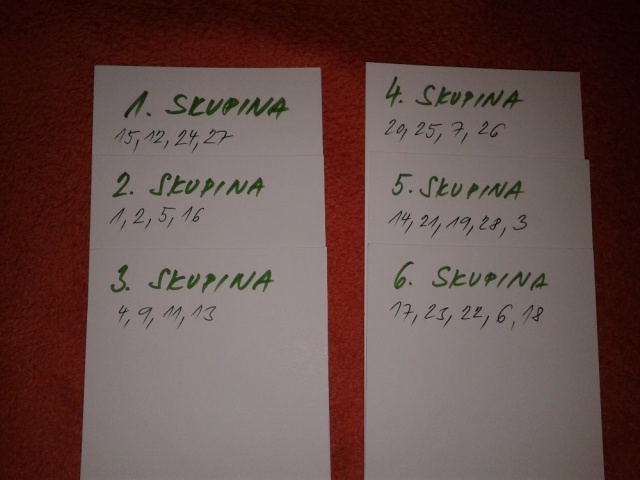 1. SKUPINA
15, 12, 24, 27
2. SKUPINA
1, 2, 5, 16
3. SKUPINA
4, 9, 11, 13
4. SKUPINA
20, 25, 7, 26
5. SKUPINA
14, 21, 19, 28, 3
6. SKUPINA
17, 23, 22, 6, 18